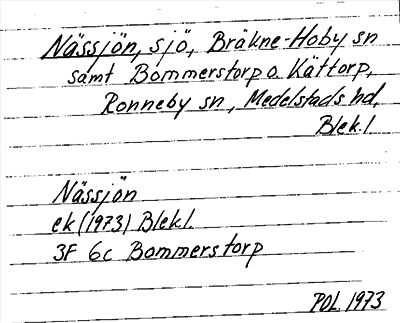 Nässjön, sjö, Bräkne-Hoby sn
samt Bommerstorp o. Kättorp,
Ronneby sn, Medelstads hd,
Blek.l.
Nässjön
ek (1973) Blekl.
3F 6c Bommerstorp
POL 1973